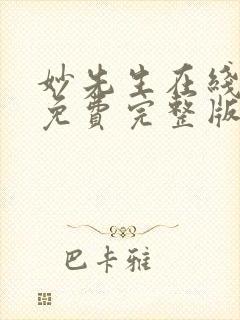 妙先生在线
免費完整版
巴卡雅